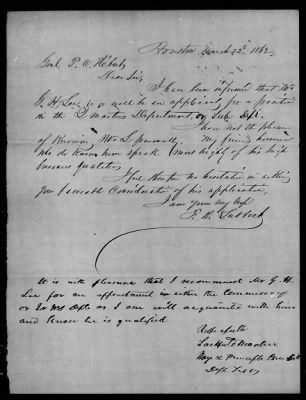 Houston March 22d 1862
Genl. P. O. Hébert,
Dear Sir,
I have been informed that Mr
G. H. Lee is or will be an applicant for a position
in the Q. Masters Department, or Sub. Dpt.
I have not the pleasure
of knowing Mr. L. personally. My friends however
who do know him speak most highly of his high
business qualities
I feel therefore no hesitation in asking
your favorable consideration of his application,
I am yours very respt
F. R. Lubbock
It is with pleasure that I recommend Mr G. H.
Lee for an appointment in either the Commissary
or Qr Mrs Dpts as I am well acquainted with him
and know he is qualified.
Respectfully
Maj &
Dept Texas